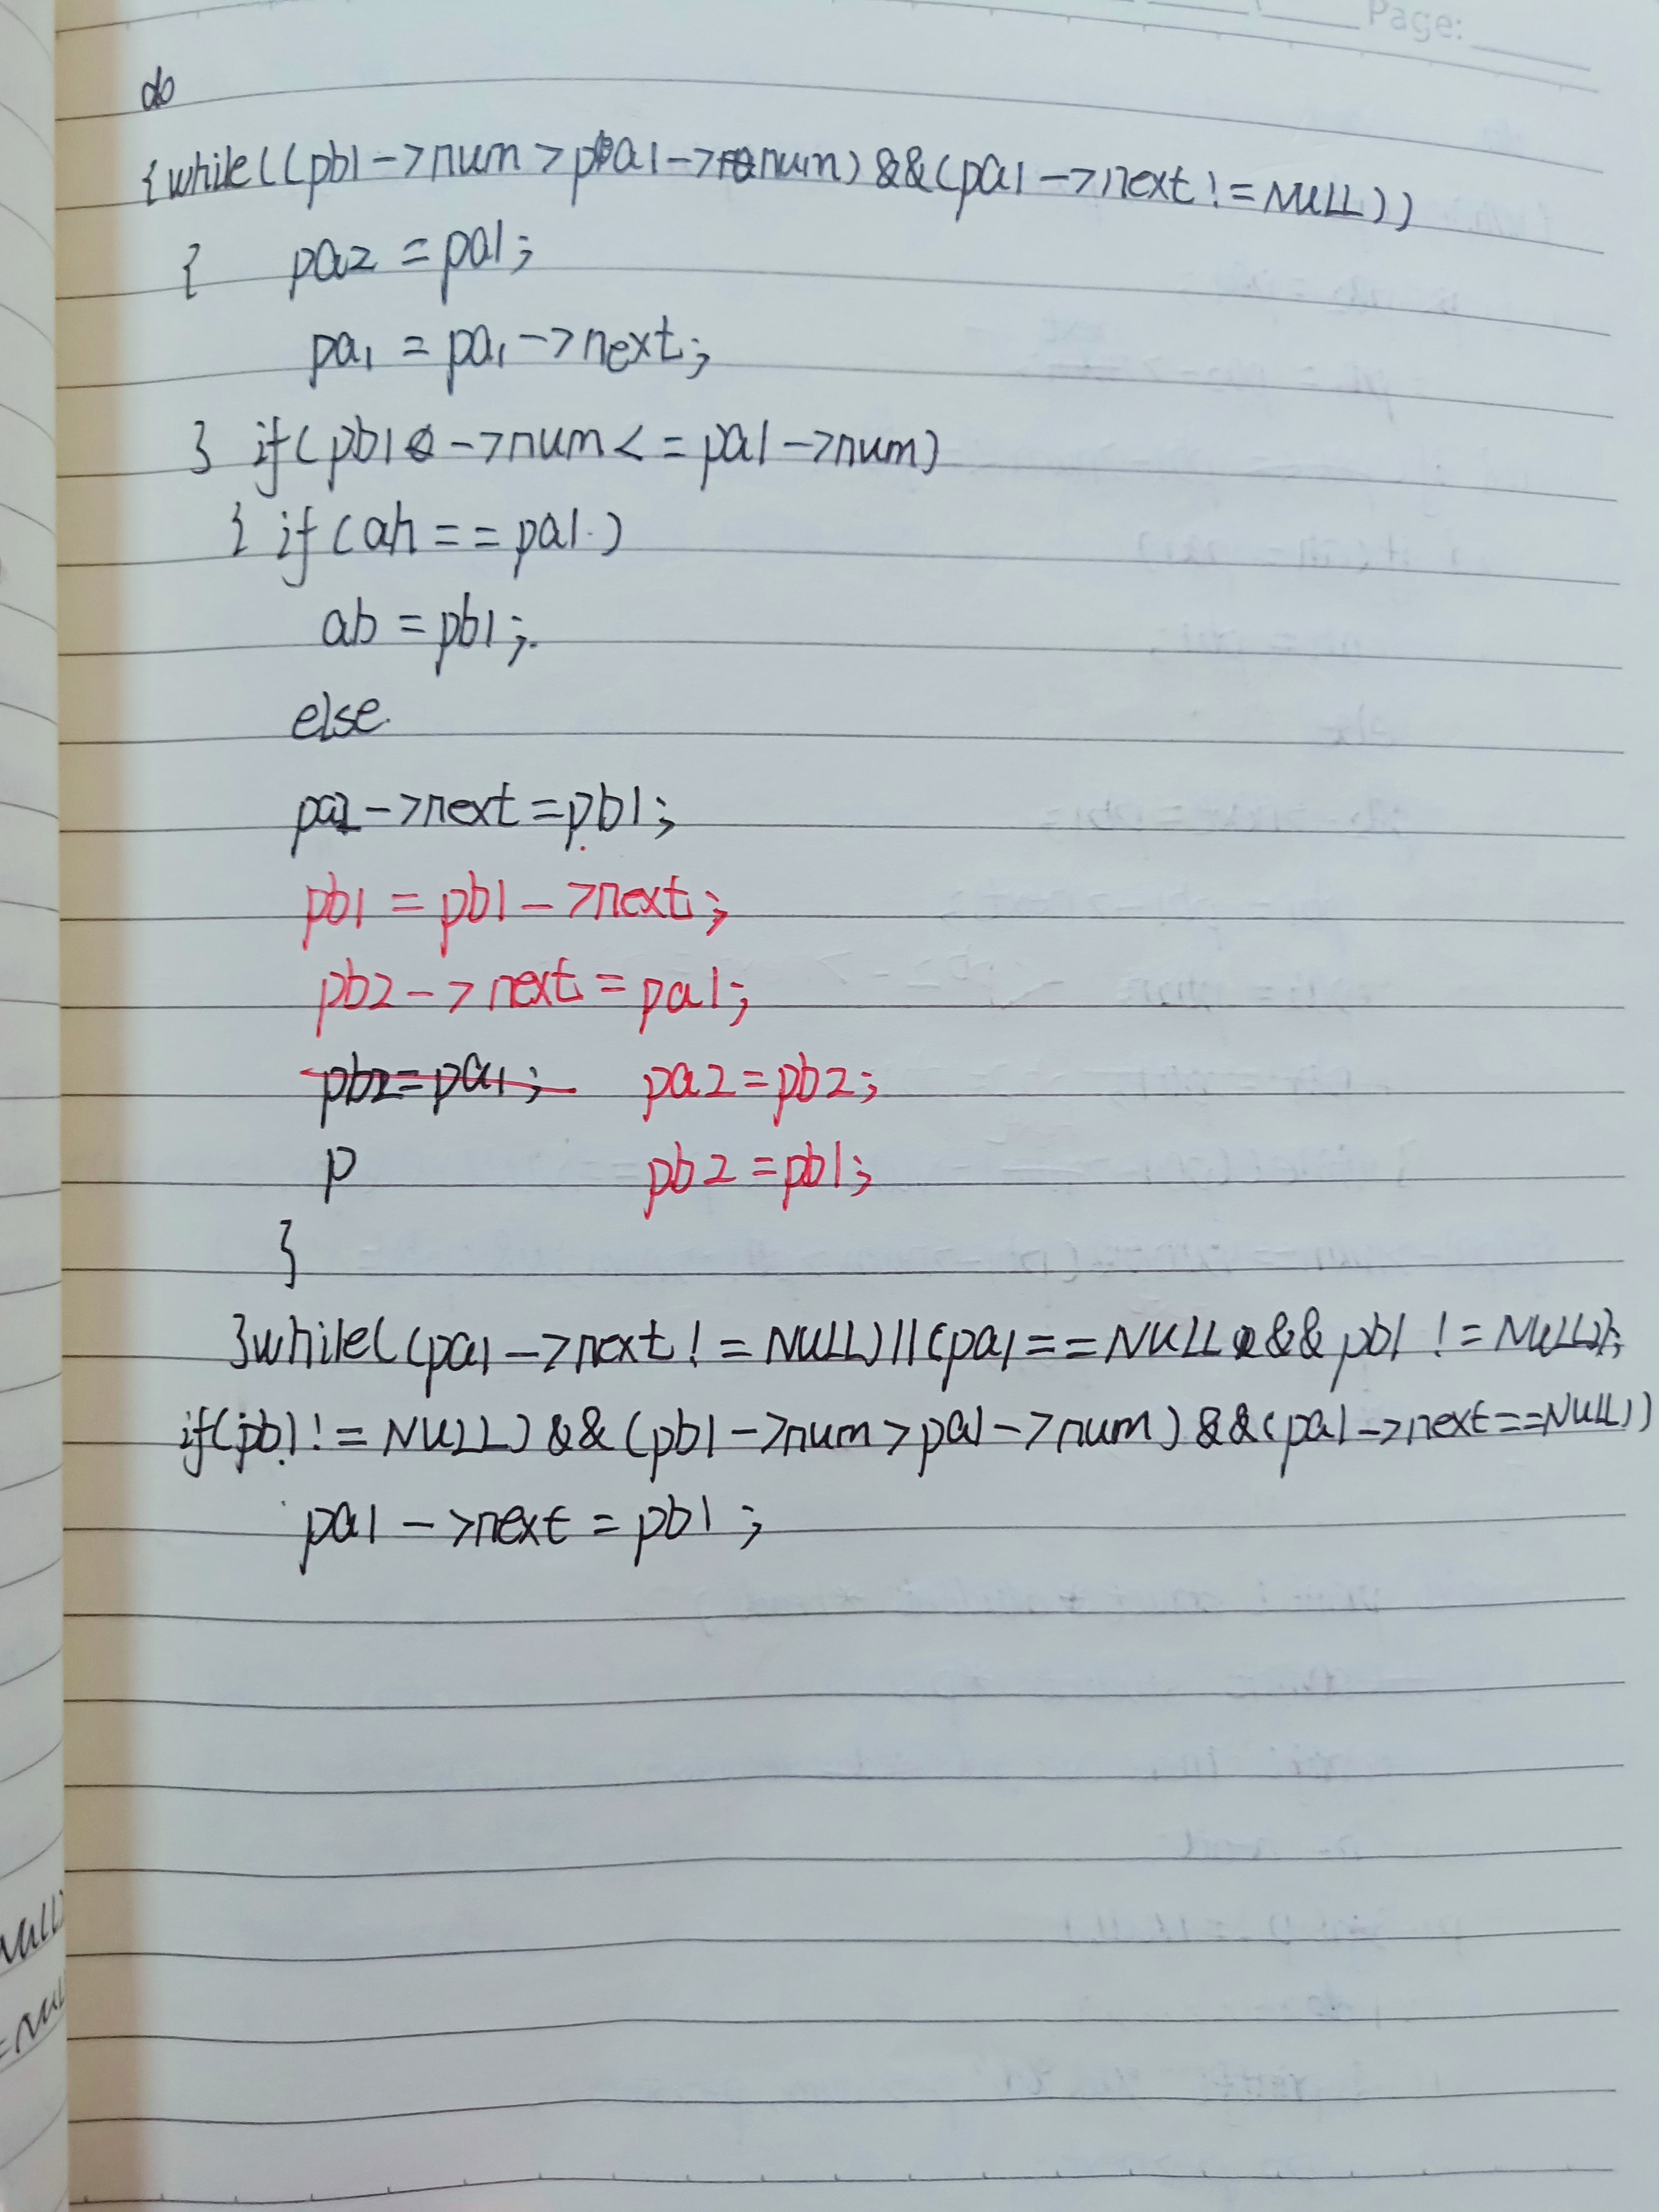 Page:
do
{while((pb1->num>pa1->num)&&(pa1->next!=NULL))
{ pa2=pa1;
pa1=pa1->next;
} if(pb1->num<=pa1->num)
{ if(ah==pa1.)
ab=pb1;
else
pa2->next=pb1;
pb1=pb1->next;
pb2->next=pa1;
pb2=pa1; pa2=pb2;
p pb2=pb1;
}
}while((pa1->next!=NULL)||(pa1==NULL&&pb1!=NULL));
if(pb1!=NULL)&&(pb1->num>pa1->num)&&(pa1->next==NULL))
pa1->next=pb1;
NULL)
=NUL